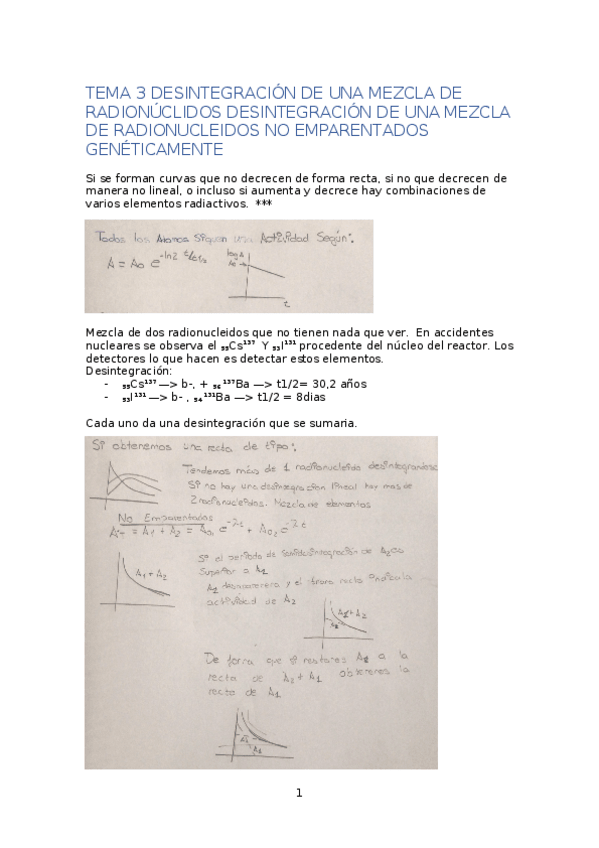 TEMA 3 DESINTEGRACIÓN DE UNA MEZCLA DE
RADIONÚCLIDOS DESINTEGRACIÓN DE UNA MEZCLA
DE RADIONUCLEIDOS NO EMPARENTADOS
GENÉTICAMENTE
Si se forman curvas que no decrecen de forma recta, si no que decrecen de
manera no lineal, o incluso si aumenta y decrece hay combinaciones de
varios elementos radiactivos. ***
Todos los Atomos siguen una Actividad Según:
A = A₀ e^-ln2 t/t1/2
log A
A₀
t
Mezcla de dos radionucleidos que no tienen nada que ver. En accidentes
nucleares se observa el ₅₅Cs¹³⁷ Y ₅₃I¹³¹ procedente del núcleo del reactor. Los
detectores lo que hacen es detectar estos elementos.
Desintegración:
- ₅₅Cs¹³⁷ —> b-, + ₅₆¹³⁷Ba —> t1/2= 30,2 años
- ₅₃I¹³¹ —> b- , ₅₄¹³¹Ba —> t1/2 = 8dias
Cada uno da una desintegración que se sumaria.
Si obtenemos una recta de tipo:
Tendemos más de 1 radionucleido desintegrandose
Si no hay una desintegración lineal hay mas de
2 radionucleidos. Mezcla de elementos
No Emparentados
= A₁ + A₂ = A₀₁ e + A₀₂ e
A₁ + A₂
Si el periodo de semidesintegración de A₂ es
superior a A₁
A₁ desaparecera y el tramo recto indica la
actividad de A₂
A₁+A₂
A₂
De forma que si restares A₂ a la
recta de A₂ + A₁ obtenemos la
recta de A₁
A₁
A₂
1